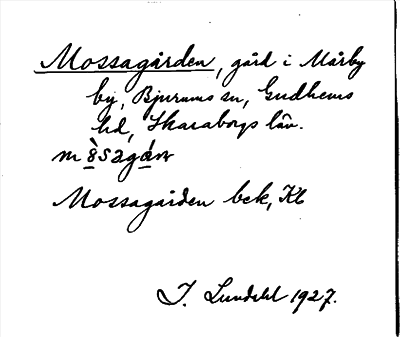 Mossagården, gård i Mårby
by, Bjurums sn, Gudhems
hd, Skaraborgs län.
Mossagården bek, Kb
I. Lundahl 1927.